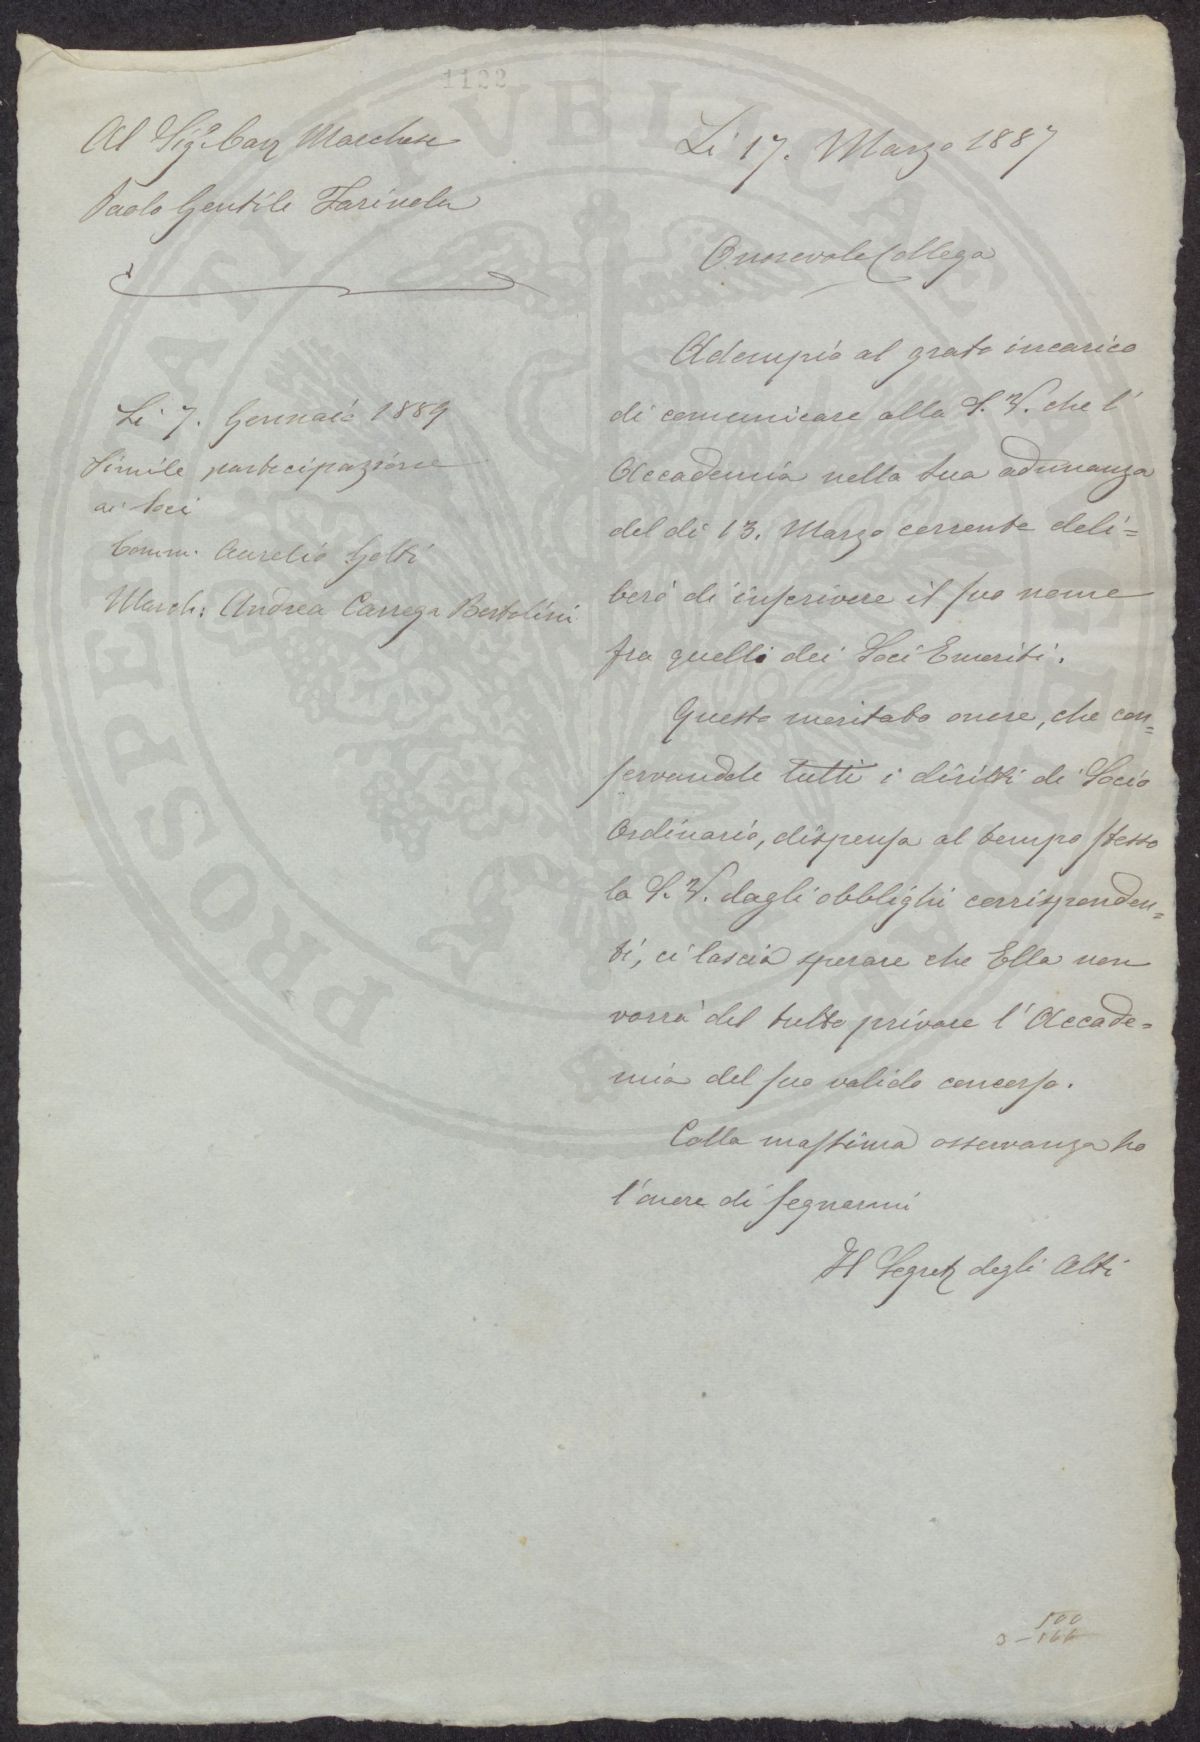 1122
Al Sig.e Cav Marchese
Paolo Gentile Farinola
Li 7. Gennaio 1889
Simile partecipazione
ai Soci
Comm. Aurelio Gotti
March: Andrea Carrega Bertolini
Li 17. Marzo 1887
Onorevole Collega
Adempio al grato incarico
di comunicare alla S. V. che l'
Accademia nella sua adunanza
del dì 13. Marzo corrente deli=
berò di inscrivere il suo nome
fra quelli dei Soci Emeriti.
Questo meritato onore, che con=
servandole tutti i diritti di Socio
Ordinario, dispensa al tempo stesso
la S. V. dagli obblighi corrisponden=
ti, ci lascia sperare che Ella non
vorrà del tutto privare l'Accade=
mia del suo valido concorso.
Colla massima osservanza ho
l'onore di segnarmi
Il Segret degli Atti
PROSPERITATI PVBLICAE AVGENDAE
500